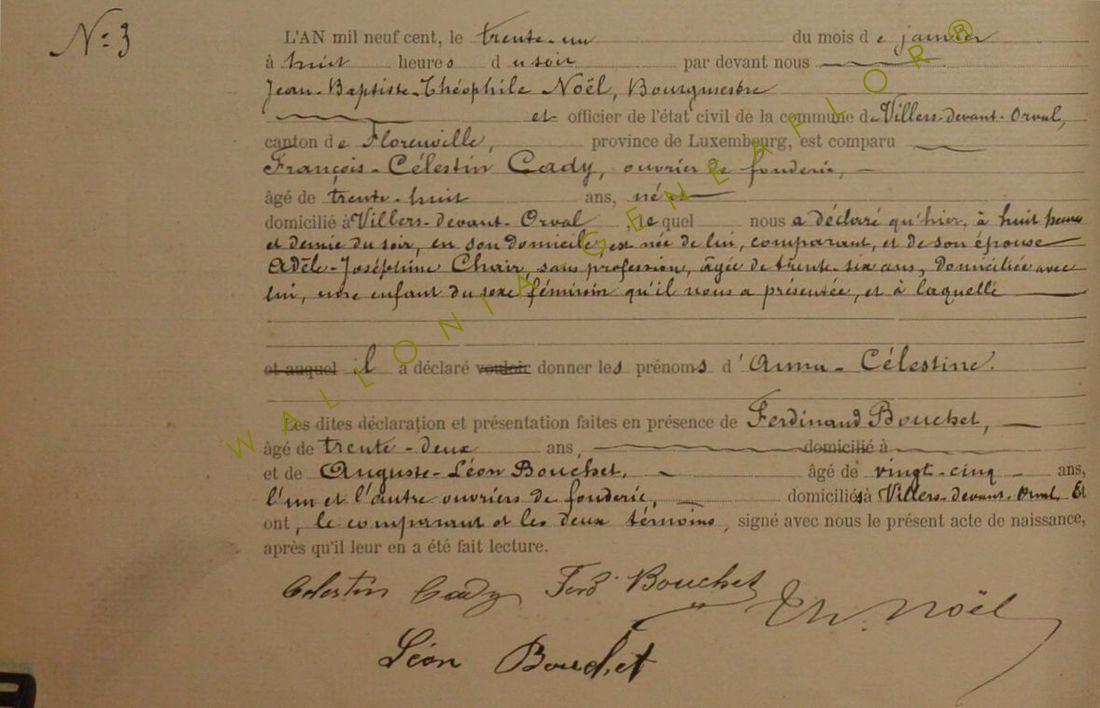 N° 3
L'AN mil neuf cent, le trente-un du mois de janvier
à huit heures du soir par devant nous
Jean-Baptiste-Théophile Noël, Bourgmestre
et officier de l'état civil de la commune de Villers-devant-Orval,
canton de Florenville, province de Luxembourg, est comparu
François-Célestin Cady, ouvrier de fonderie,
âgé de trente-huit ans, né
domicilié à Villers-devant-Orval, lequel nous a déclaré qu'hier, à huit heures
et demie du soir, en son domicile, est née de lui, comparant, et de son épouse
Adèle-Joséphine Chair, sans profession, âgée de trente-six ans, domiciliée avec
lui, une enfant du sexe féminin qu'il nous a présentée, et à laquelle
et auquel il a déclaré vouloir donner les prénoms d'Anna-Célestine.
Les dites déclaration et présentation faites en présence de Ferdinand Bouchet,
âgé de trente-deux ans, domicilié à
et de Auguste-Léon Bouchet, âgé de vingt-cinq ans,
l'un et l'autre ouvriers de fonderie, domiciliés à Villers-devant-Orval. Et
ont, le comparant et les deux témoins, signé avec nous le présent acte de naissance,
après qu'il leur en a été fait lecture.
Célestin Cady Ferd Bouchet Th. Noël
Léon Bouchet
WALLONIA GENEAFLOR®